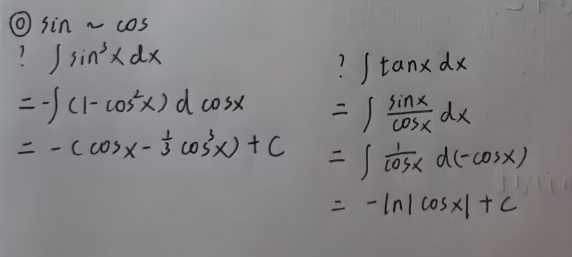 ◎ sin ~ cos
? ∫ sin³x dx
= -∫ (1 - cos²x) d cosx
= - (cosx - 1/3 cos³x) + C
? ∫ tanx dx
= ∫ sinx/cosx dx
= ∫ 1/cosx d(-cosx)
= -ln|cosx| + C